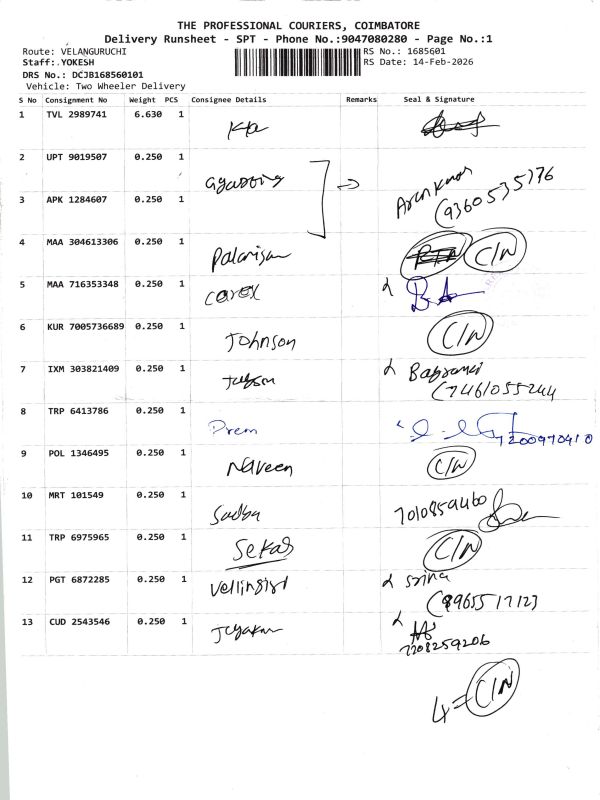 THE PROFESSIONAL COURIERS, COIMBATORE
Delivery Runsheet - SPT - Phone No.:9047080280 - Page No.:1
Route: VELANGURUCHI
RS No.: 1685601
Staff: YOKESH
RS Date: 14-Feb-2026
DRS No.: DCJB168560101
Vehicle: Two Wheeler Delivery
S No Consignment No Weight PCS Consignee Details Remarks Seal & Signature
1 TVL 2989741 6.630 1
2 UPT 9019507 0.250 1
3 APK 1284607 0.250 1 (9360535776
4 MAA 304613306 0.250 1 C/N
5 MAA 716353348 0.250 1 carol
6 KUR 7005736689 0.250 1 Johnson C/N
7 IXM 303821409 0.250 1
(7461055244
8 TRP 6413786 0.250 1 Prem
7200970410
9 POL 1346495 0.250 1 Naveen C/N
10 MRT 101549 0.250 1 7010859460
11 TRP 6975965 0.250 1 Sekar C/N
12 PGT 6872285 0.250 1
13 CUD 2543546 0.250 1
7208259206
4 = C/N